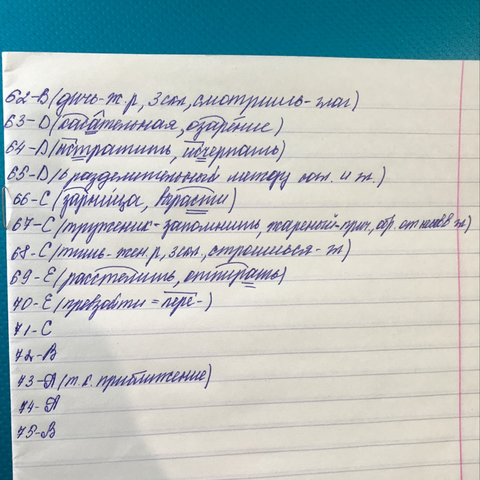 62-В (дичь-ж.р, 3скл, смотришь-глаг)
63-D (обаятельная, озарение)
64-D (истратить, исчерпать)
65-D (ь разделительный между сог. и )
66-С (зарница,врасти)
67-С (труженик-запомнить, жареный-прич, обр. от )
68-С (тишь-жен.р, 3скл, строишься- )
69-Е (расстелить, отпирать)
70-Е (превзойти = пере-)
71-С
72-В
73-А (т.к. приближение)
74-А
75-В